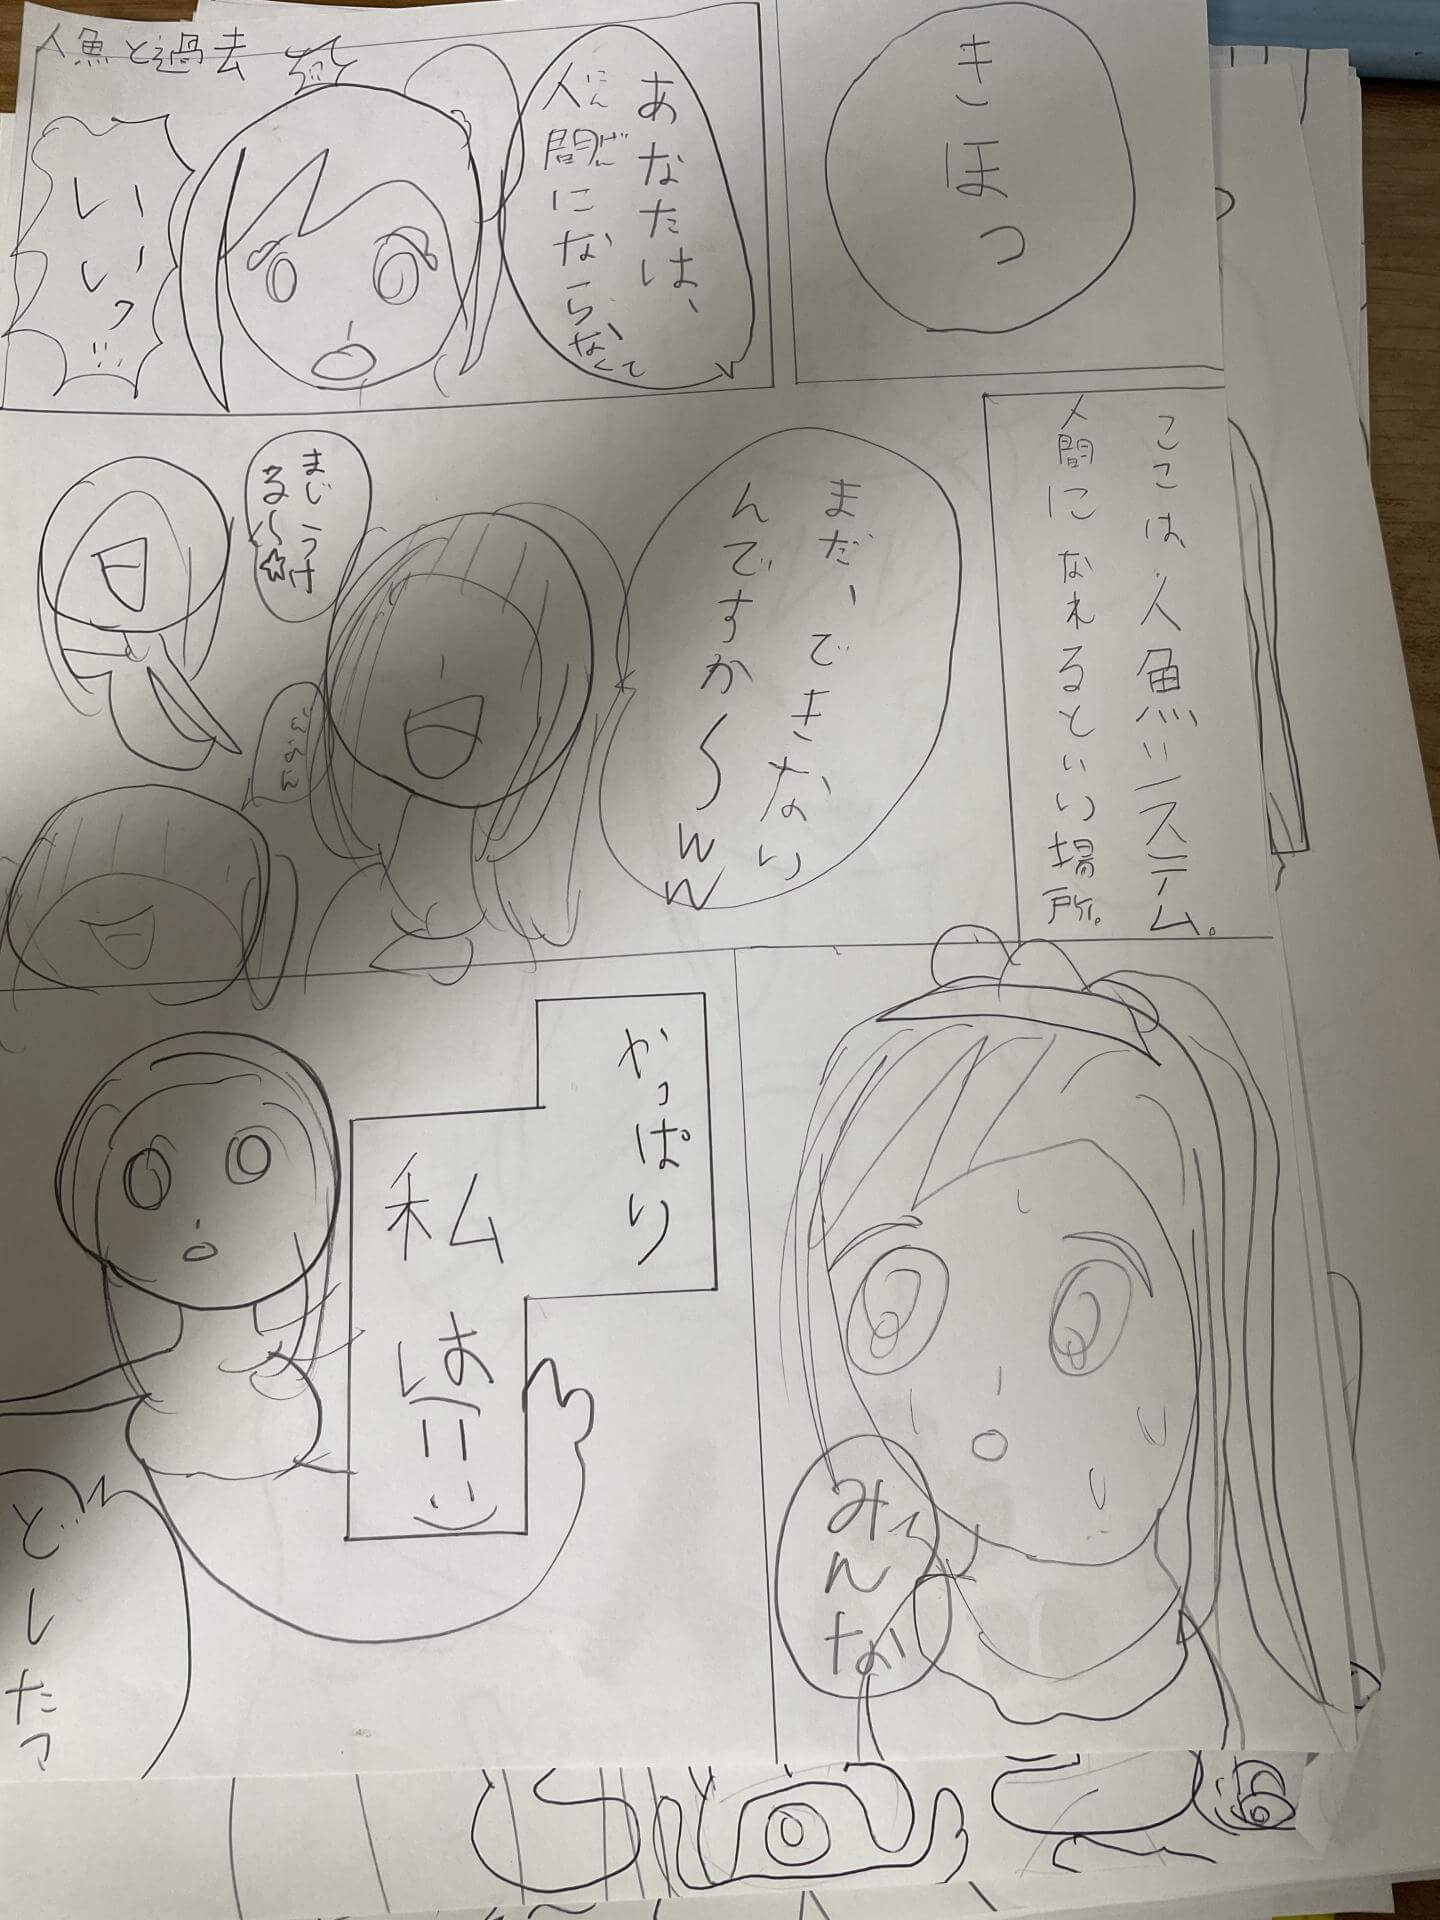 人魚と過去
きほっ
あなたは、
人間になら
なくて
にんげん
いー
しっ
ここは、人魚システム。
人間になれるといい場所。
まだ、できない
んですか〜ww
まじうけ
る〜☆
みんな
やっぱり
私は
としたっ